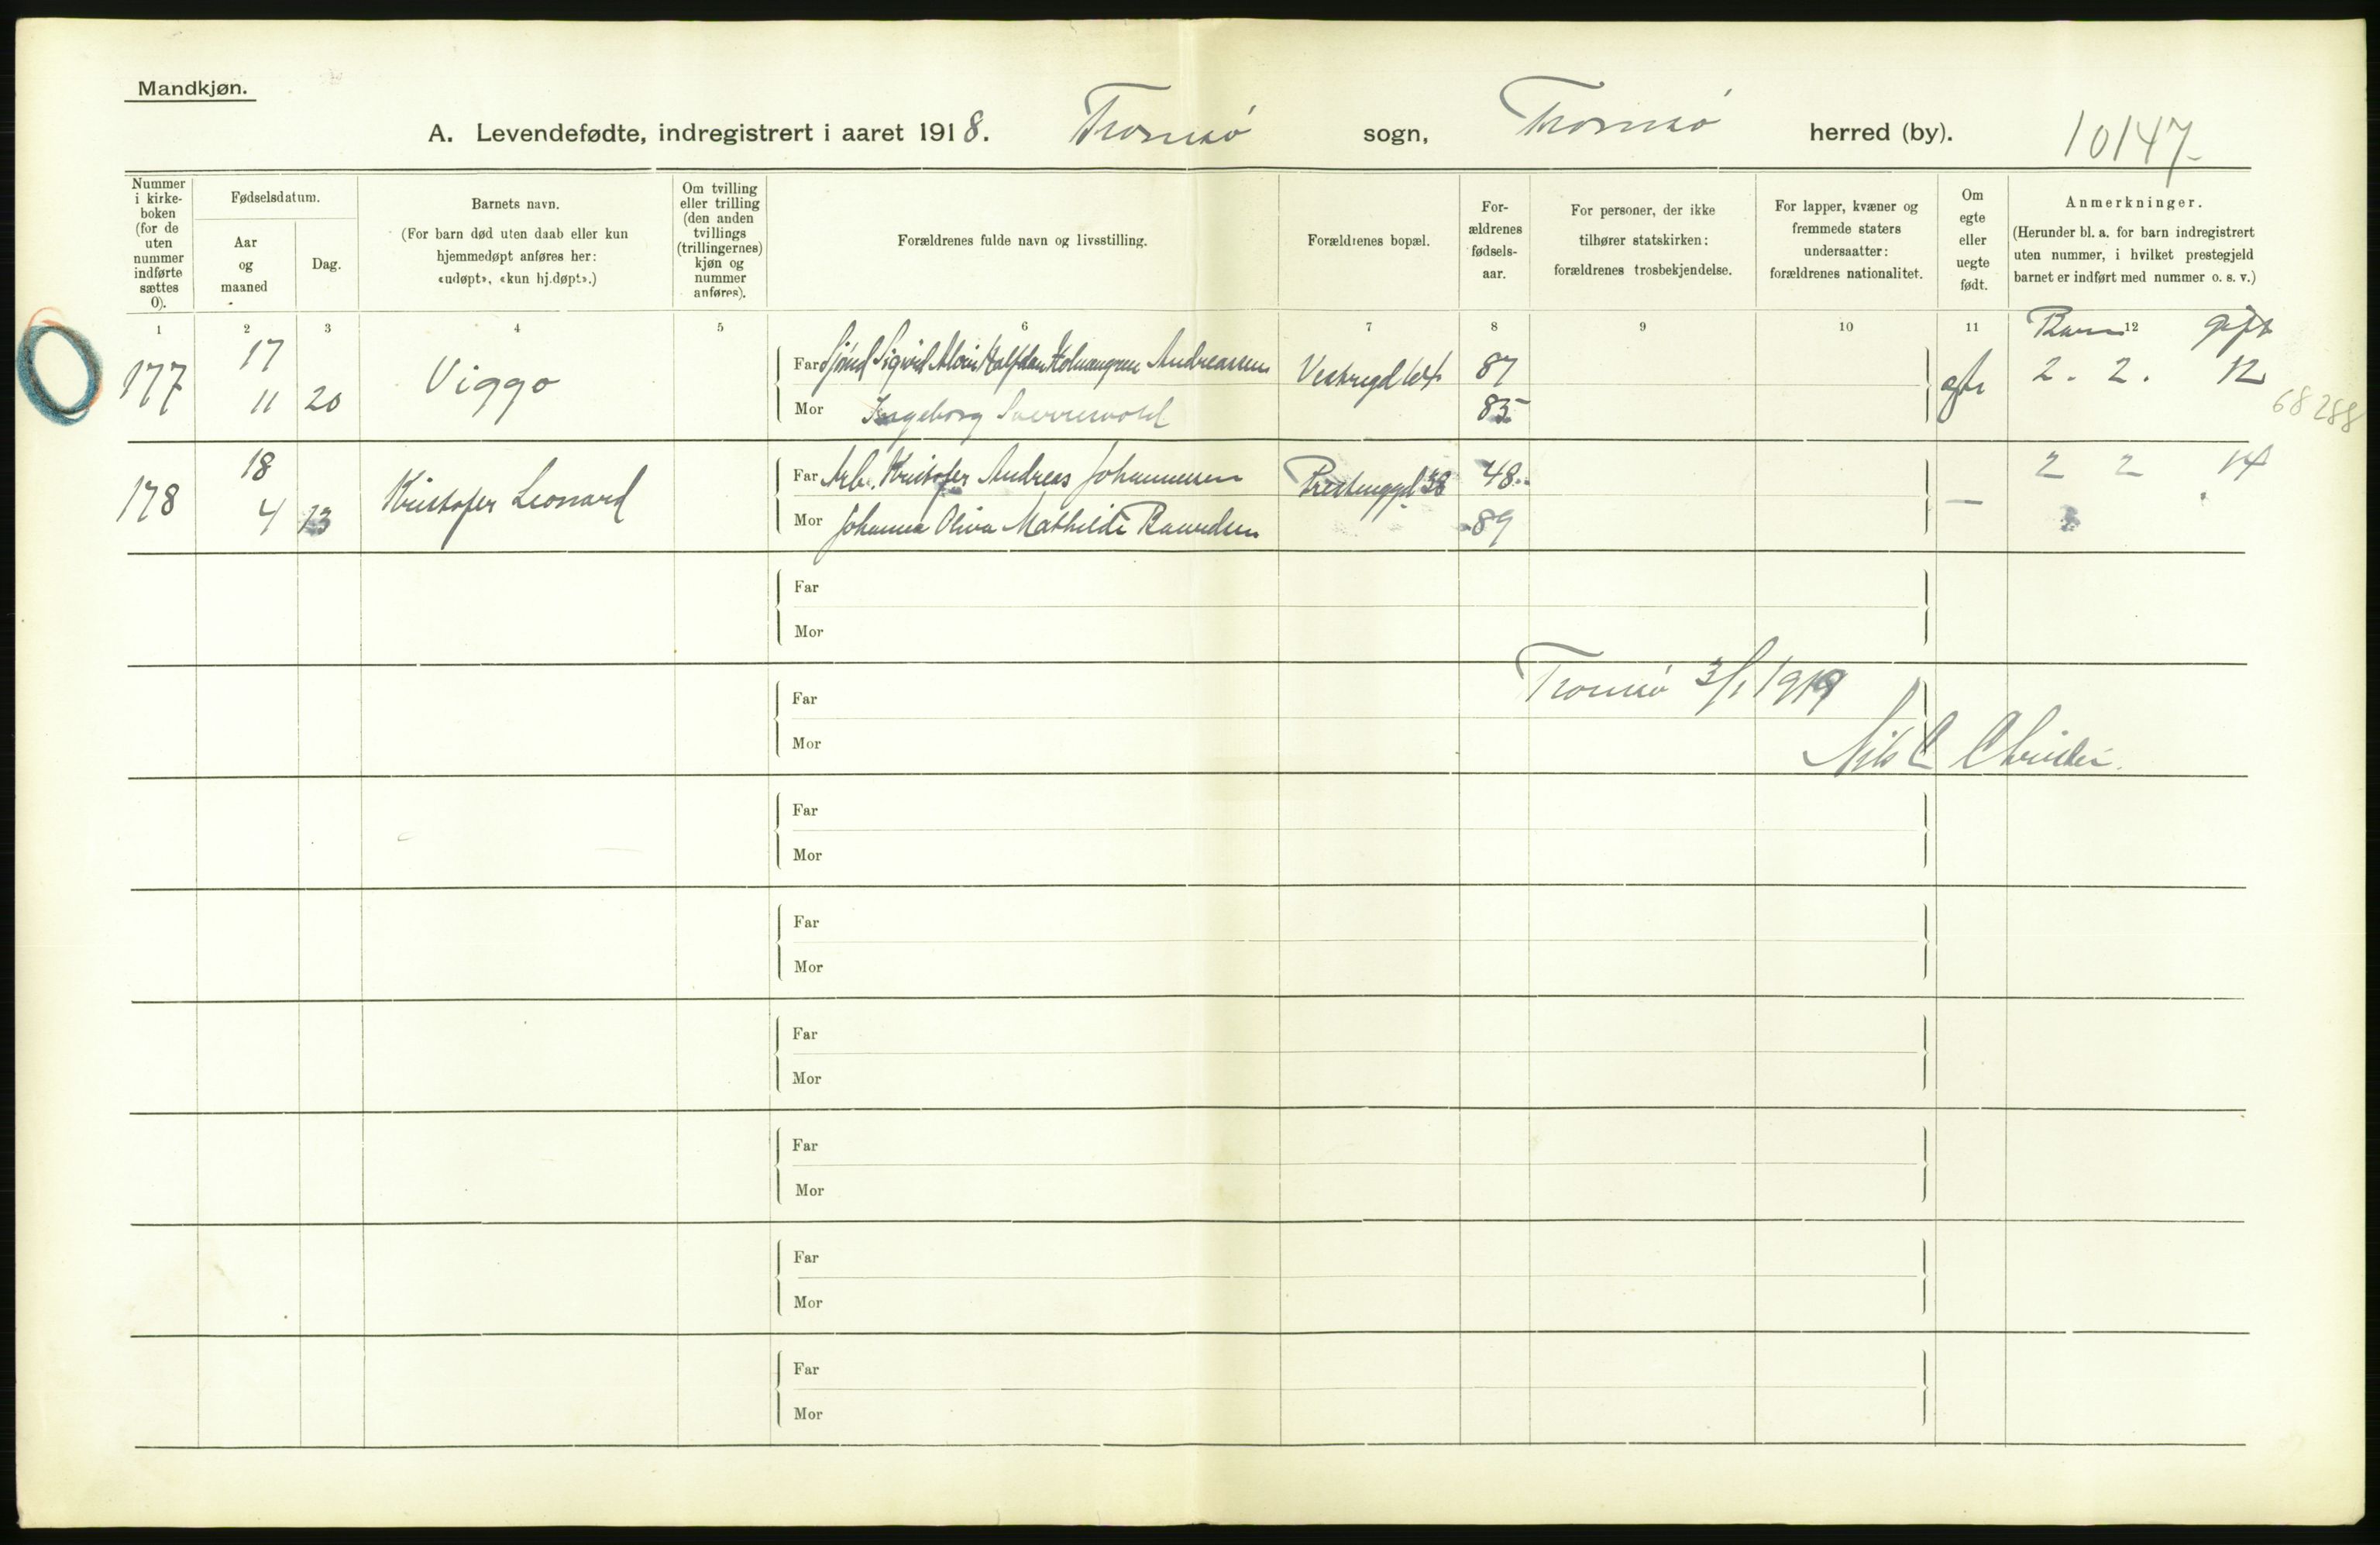 Mandkjøn.
A. Levendefødte, indregistrert i aaret 1918. Tromsø sogn, Tromsø herred (by). 10147
Nummer i kirke-boken (for de uten nummer indførte sættes 0).
Fødselsdatum.
Aar og maaned
Dag.
Barnets navn.
(For barn død uten daab eller kun hjemmedøpt anføres her: «udøpt», «kun hj.døpt».)
Om tvilling eller trilling (den anden tvillings (trillingernes) kjøn og nummer anføres).
Forældrenes fulde navn og livsstilling.
Forældrenes bopæl.
For-ældrenes fødsels-aar.
For personer, der ikke tilhører statskirken: forældrenes trosbekjendelse.
For lapper, kvæner og fremmede staters undersaatter: forældrenes nationalitet.
Om egte eller uegte født.
Anmerkninger.
(Herunder bl. a. for barn indregistrert uten nummer, i hvilket prestegjeld barnet er indført med nummer o. s. v.)
1 2 3 4 5 6 7 8 9 10 11 12
Barn gift
177 17 11 20 Viggo
Far Sigvid Halfdan Andreassen 87
Mor Ingeborg 85
2. 2. 12
68288
178 18 4 13 Kristofer Leonard
Far Arb. Kristofer Andreas Johannesen 48.
Mor Johanna Oliva Mathilde 89
— 2 2 14
Far
Mor
Far
Mor
Tromsø 3/1 1919
Nils C
Far
Mor
Far
Mor
Far
Mor
Far
Mor
Far
Mor
Far
Mor